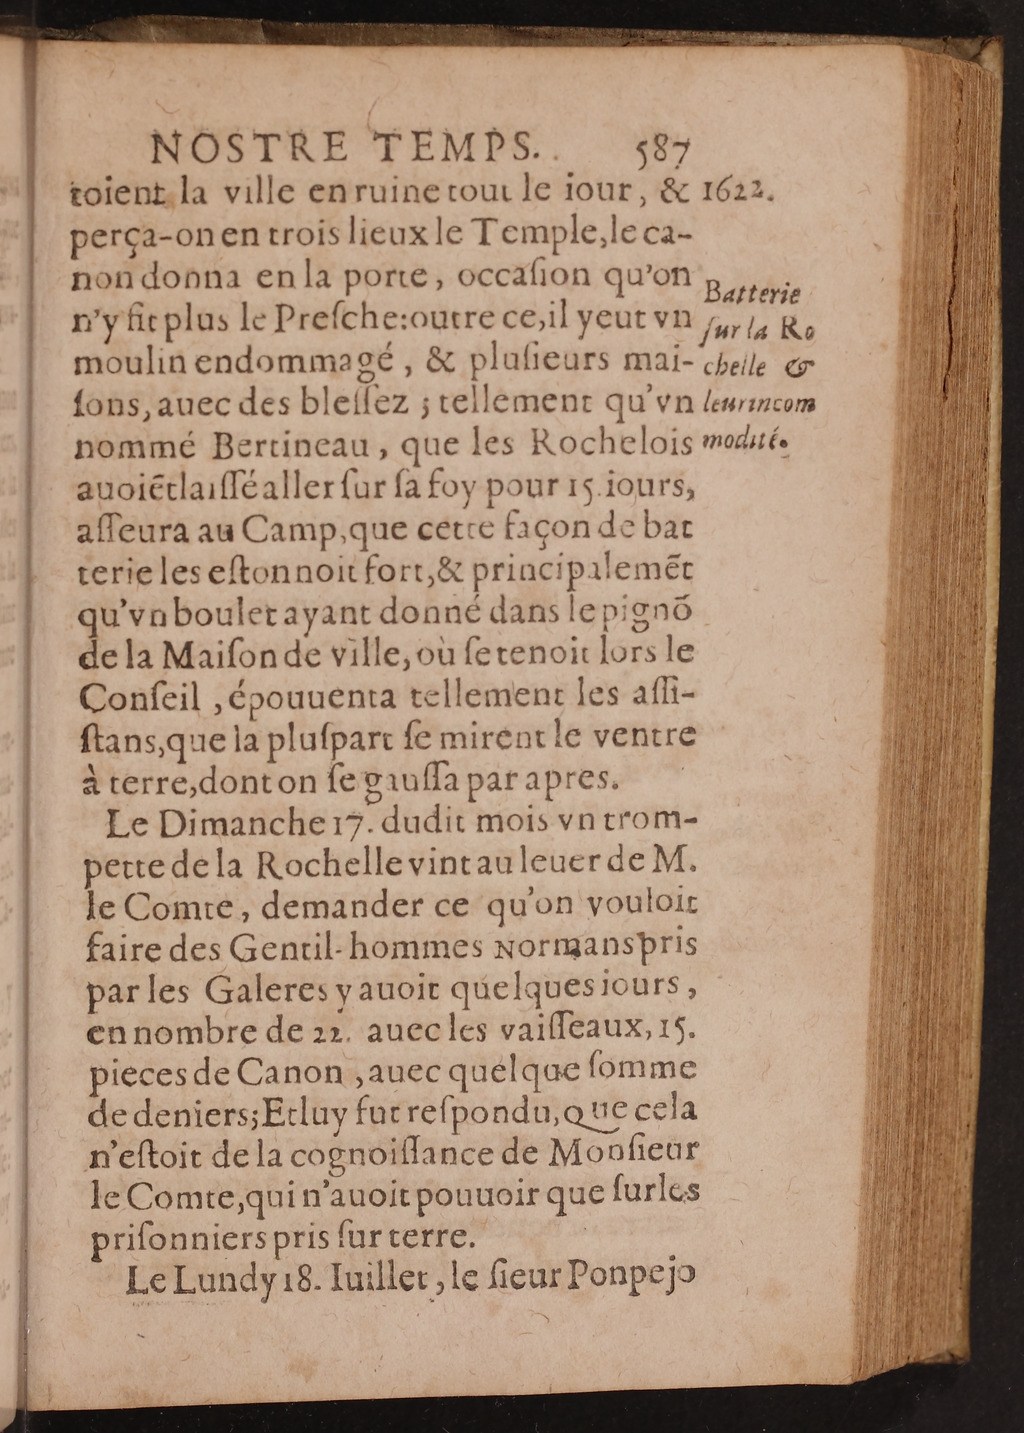 NOSTRE TEMPS. 587
toient la ville en ruine tout le iour, & 1622.
perça-on en trois lieux le Temple, le ca-
non donna en la porte, occaſion qu'on
n'y fit plus le Preſche: outre ce, il y eut vn
moulin endommagé, & pluſieurs mai-
ſons, auec des bleſſez; tellement qu'vn
nommé Bertineau, que les Rochelois
auoiẽt laiſſé aller ſur ſa foy pour 15. iours,
aſſeura au Camp, que cette façon de bat
terie les eſtonnoit fort, & principalemẽt
qu'vn boulet ayant donné dans le pignõ
de la Maiſon de ville, où ſe tenoit lors le
Conſeil, épouuenta tellement les aſſi-
ſtans, que la pluſpart ſe mirent le ventre
à terre, dont on ſe gauſſa par apres.
Batterie
ſur la Ro
chelle &
leur incom
modité.
Le Dimanche 17. dudit mois vn trom-
pette de la Rochelle vint au leuer de M.
le Comte, demander ce qu'on vouloit
faire des Gentil-hommes Normans pris
par les Galeres y auoit quelques iours,
en nombre de 22. auec les vaiſſeaux, 15.
pieces de Canon, auec quelque ſomme
de deniers; Et luy fut reſpondu, Que cela
n'eſtoit de la cognoiſſance de Monſieur
le Comte, qui n'auoit pouuoir que ſur les
priſonniers pris ſur terre.
Le Lundy 18. Iuillet, le ſieur Ponpejo